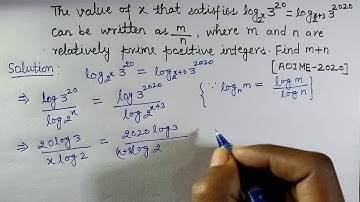 The value of x that satisfies log_{2^x} 3^{20} = log_{2^{x+3}} 3^{2020}
can be written as m/n, where m and n are
relatively prime positive integers. Find m+n
Solution: [AOIME-2020]
log_{2^x} 3^{20} = log_{2^{x+3}} 3^{2020}
⇒ log 3^{20} / log 2^x = log 3^{2020} / log 2^{x+3} {∵ log_n m = log m / log n}
⇒ 20 log 3 / x log 2 = 2020 log 3 / (x+3) log 2